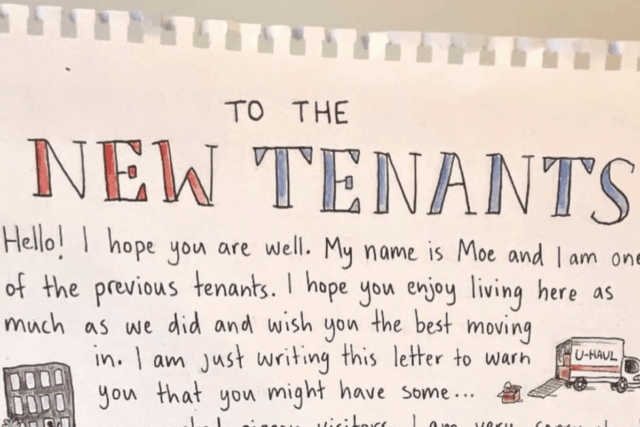 TO THE
NEW TENANTS
Hello! I hope you are well. My name is Moe and I am one
of the previous tenants. I hope you enjoy living here as
much as we did and wish you the best moving
in. I am just writing this letter to warn
U-HAUL
you that you might have some...
visitors. I am very